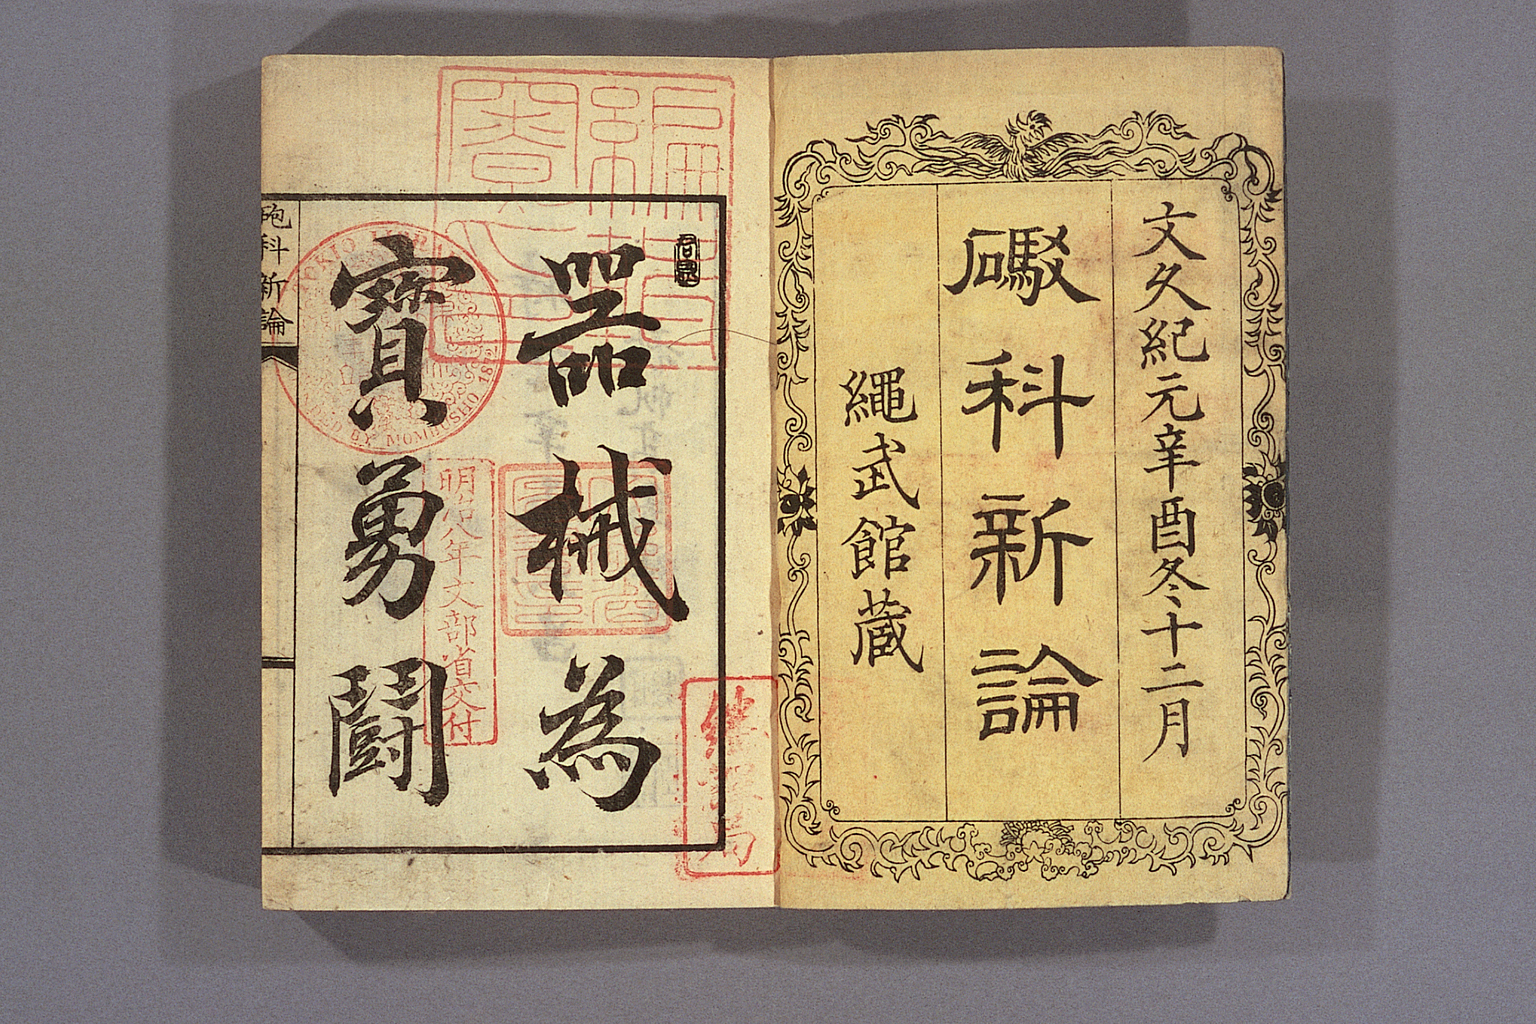 文久紀元辛酉冬十二月
礮科新論
繩武館蔵
器械為
寶勇鬪
砲科新論
明治八年文部省交付
編
TOKIO
BY MOMBUSHO 1872